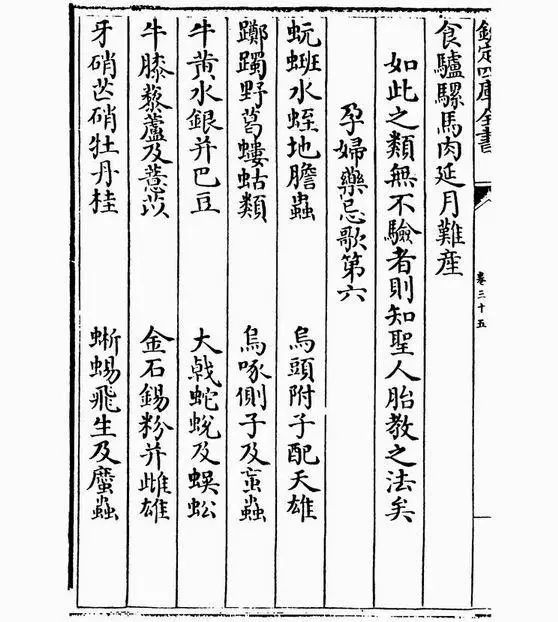 欽定四庫全書
卷三十五
食驢騾馬肉延月難產
如此之類無不驗者則知聖人胎教之法矣
孕婦藥忌歌第六
蚖水蛭地膽蟲　烏頭附子配天雄
躑躅野葛螻蛄類　烏啄側子及䖟蟲
牛黄水銀并巴豆　大戟蛇蛻及蜈蚣
牛膝藜蘆及薏苡　金石錫粉并雌雄
牙硝芒硝牡丹桂　蜥蜴飛生及䗪蟲